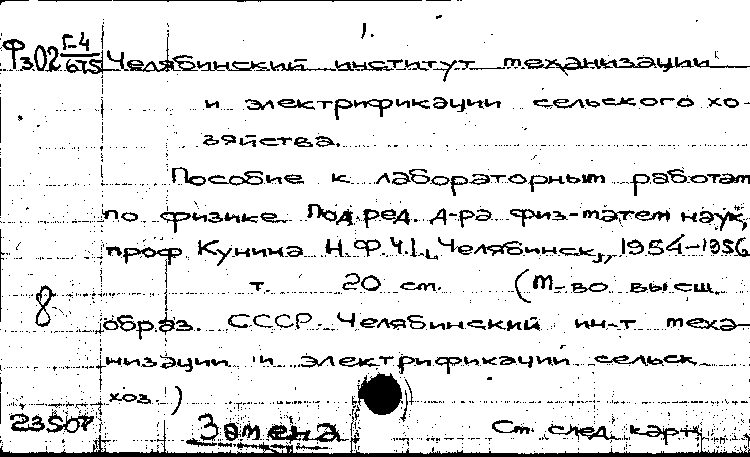 1.
Фз02 Г-4/675 Челябинский институт механизации
и электрификации сельского хо-
зяйства.
Пособие к лабораторным работам
по физике. Под ред. д-ра физ-матем наук,
проф Кунина Н.Ф. Ч.1, Челябинск, 1954-1956
т. 20 см. (М-во высш.
8 образ. СССР. Челябинский ин-т меха-
низации и электрификации сельск
хоз.)
23507 Замена См. след. карт.